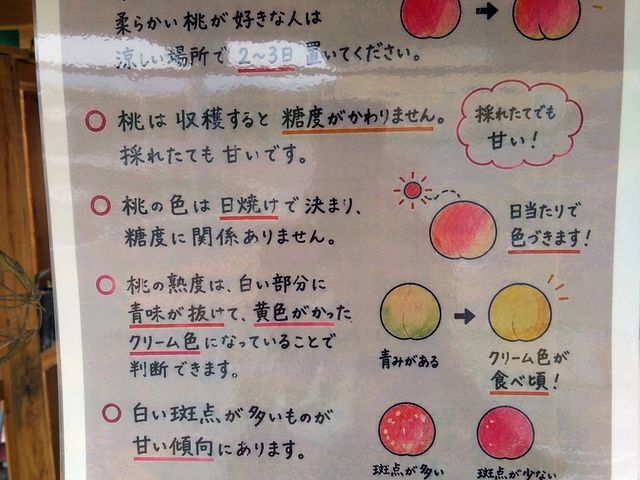 柔らかい桃が好きな人は
涼しい場所で2〜3日置いてください。
桃は収穫すると糖度がかわりません。
採れたても甘いです。
採れたてでも
甘い！
桃の色は日焼けで決まり、
糖度に関係ありません。
日当たりで
色づきます！
桃の熟度は、白い部分に
青味が抜けて、黄色がかった
クリーム色になっていることで
判断できます。
青みがある
クリーム色が
食べ頃！
白い斑点が多いものが
甘い傾向にあります。
斑点が多い
斑点が少ない